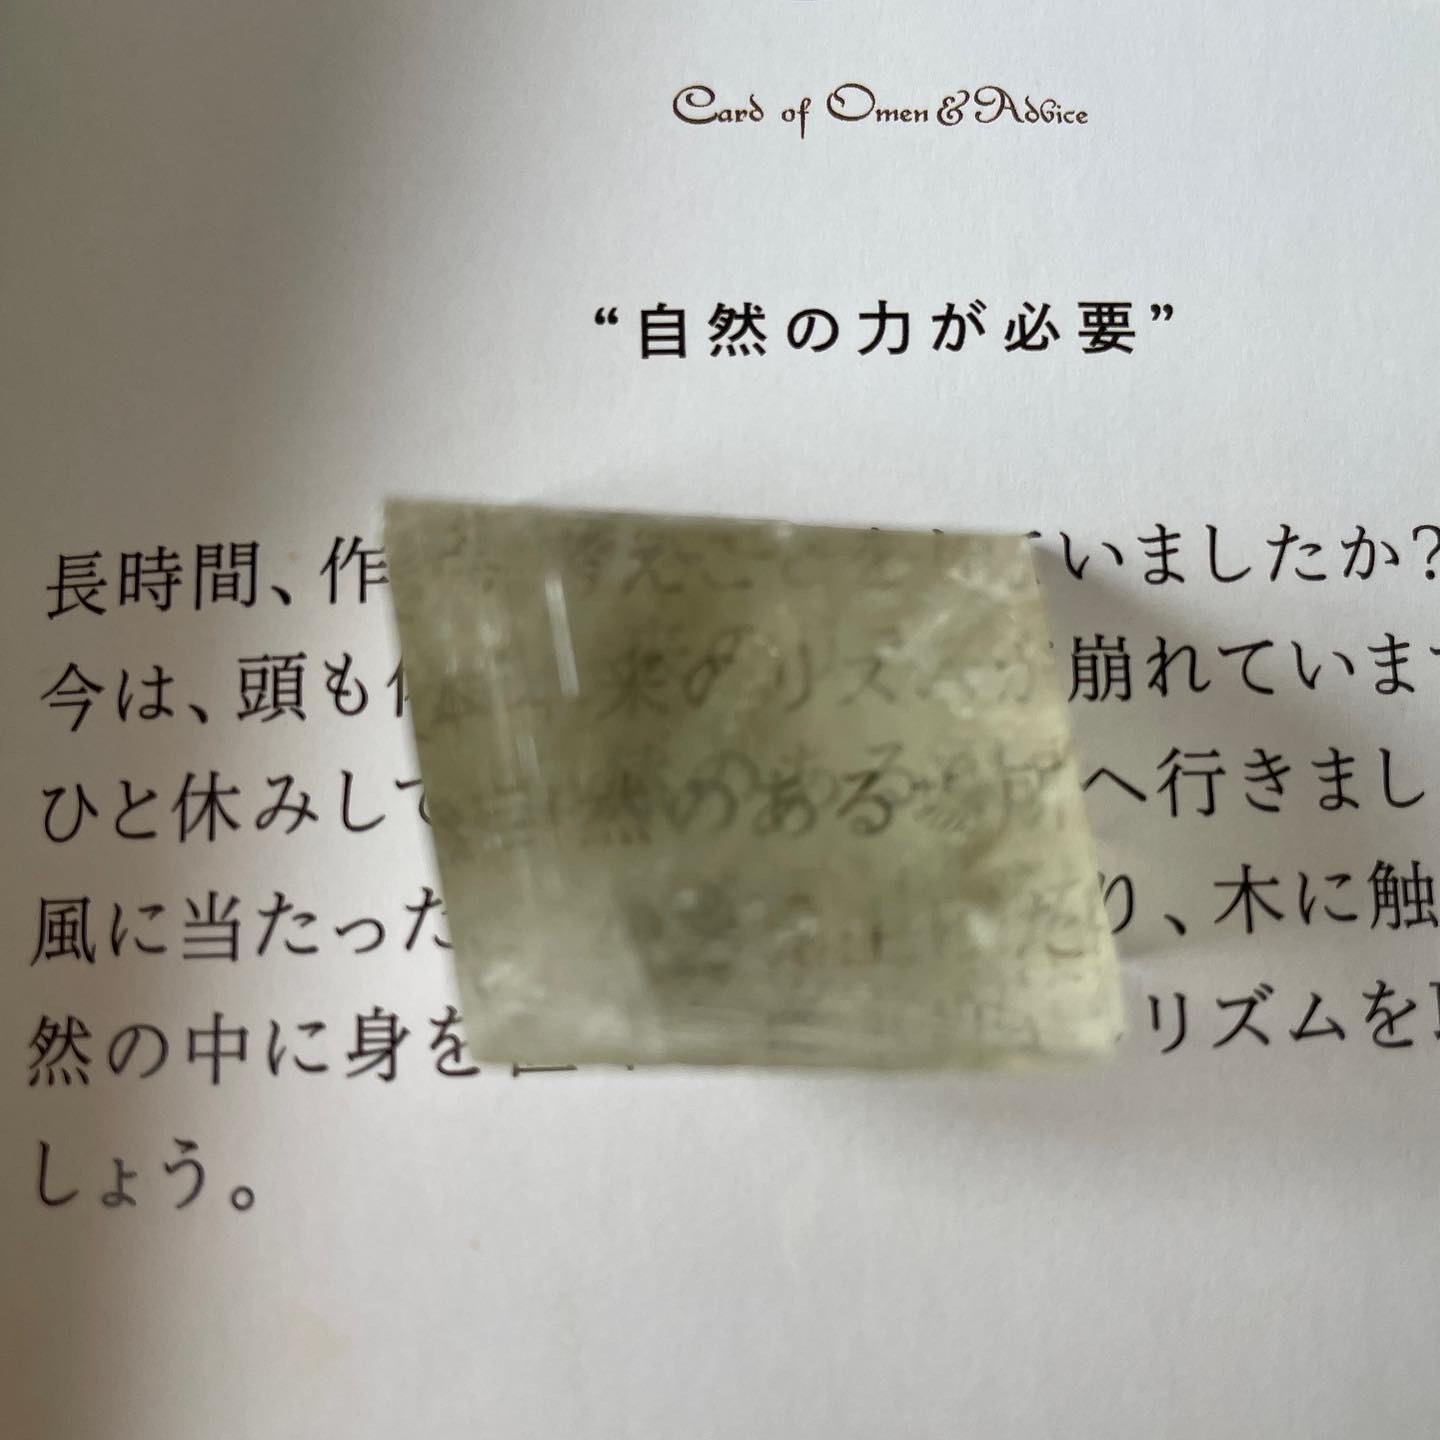 Card of Omen & Advice
“自然の力が必要”
長時間、作 考えごとを していましたか?
今は、頭も体も本来のリズムが崩れています
ひと休みして、自然のある場所へ行きまし
風に当たった り、木に触
然の中に身を置 リズムを
しょう。